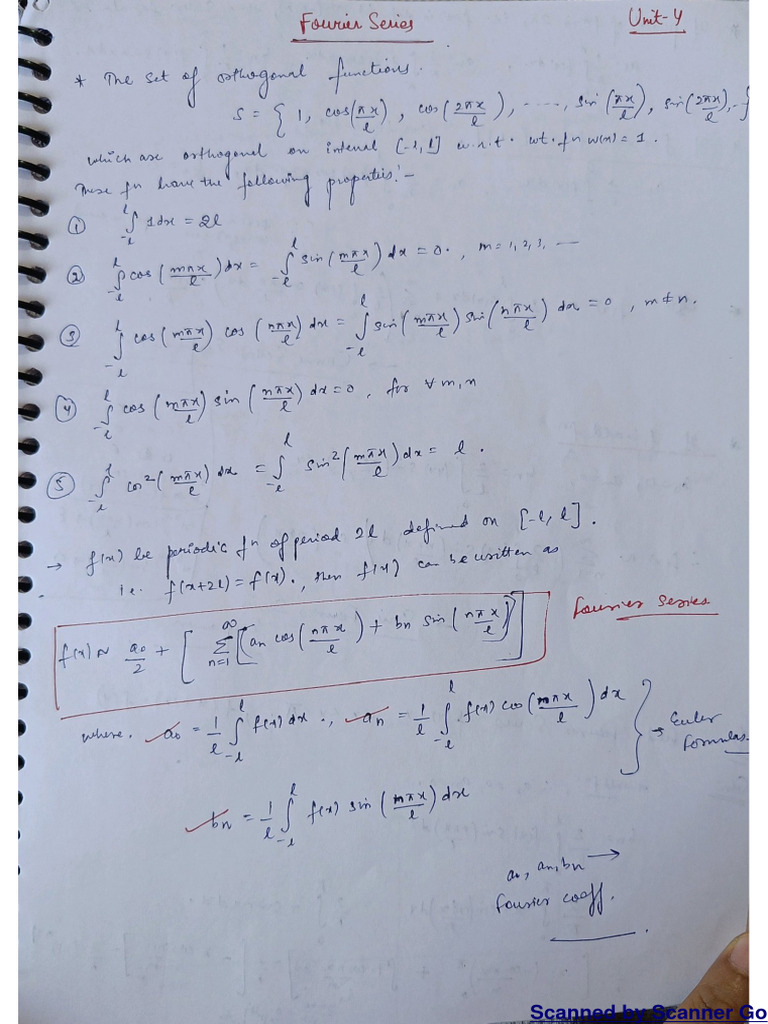 Fourier Series
Unit-4
* The set of orthogonal functions.
S = { 1, cos(πx/l), cos(2πx/l), -----, sin(πx/l), sin(2πx/l), -- }
which are orthogonal on interval [-l, l] w.r.t. wt. fn w(x) = 1.
These fn have the following properties:-
① ∫_{-l}^{l} 1dx = 2l
② ∫_{-l}^{l} cos(mπx/l) dx = ∫_{-l}^{l} sin(mπx/l) dx = 0. , m = 1, 2, 3, ---
③ ∫_{-l}^{l} cos(mπx/l) cos(nπx/l) dx = ∫_{-l}^{l} sin(mπx/l) sin(nπx/l) dx = 0 , m ≠ n.
④ ∫_{-l}^{l} cos(mπx/l) sin(nπx/l) dx = 0 , for ∀ m, n
⑤ ∫_{-l}^{l} co²(mπx/l) dx = ∫_{-l}^{l} sin²(mπx/l) dx = l.
→ f(x) be periodic fn of period 2l defined on [-l, l].
i.e. f(x+2l) = f(x). , then f(x) can be written as
f(x) ~ a₀/2 + [ ∑_{n=1}^{∞} [ an cos(nπx/l) + bn sin(nπx/l) ] ]
Fourier Series
where. a₀ = 1/l ∫_{-l}^{l} f(x) dx. , an = 1/l ∫_{-l}^{l} f(x) cos(mπx/l) dx } → Euler Formulas.
bn = 1/l ∫_{-l}^{l} f(x) sin(mπx/l) dx
a₀, an, bn →
Fourier coeff.
Scanned by Scanner Go